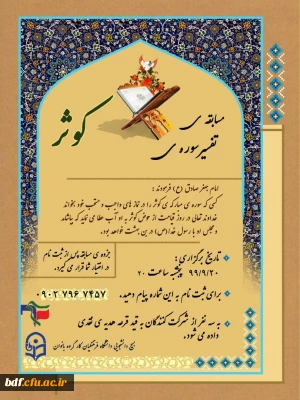 مسابقه ی
تفسیر سوره ی
کوثر
امام جعفر صادق (ع) فرمودند :
کسی که سوره ی مبارکه ی کوثر را در نماز های واجب و مستحب خود بخواند
خداوند تعالی در روز قیامت از حوض کوثر به او آب عطا می نماید که بیاشامد
و مجلس او با رسول خدا(ص) در بهشت خواهد بود.
تاریخ برگزاری:
۹۹/۹/۲۰ پنجشنبه ساعت ۲۰
جزوه ی مسابقه پس از ثبت نام
در اختیار شما قرار می گیرد.
برای ثبت نام به این شماره پیام دهید.
۰۹۰۲ ۷۹۶ ۷۴۵۷
به سه نفر از شرکت کنندگان به قید قرعه هدیه ی نقدی
داده می شود.
بسیج دانشجویی دانشگاه فرهنگیان
bdf.cfu.ac.ir